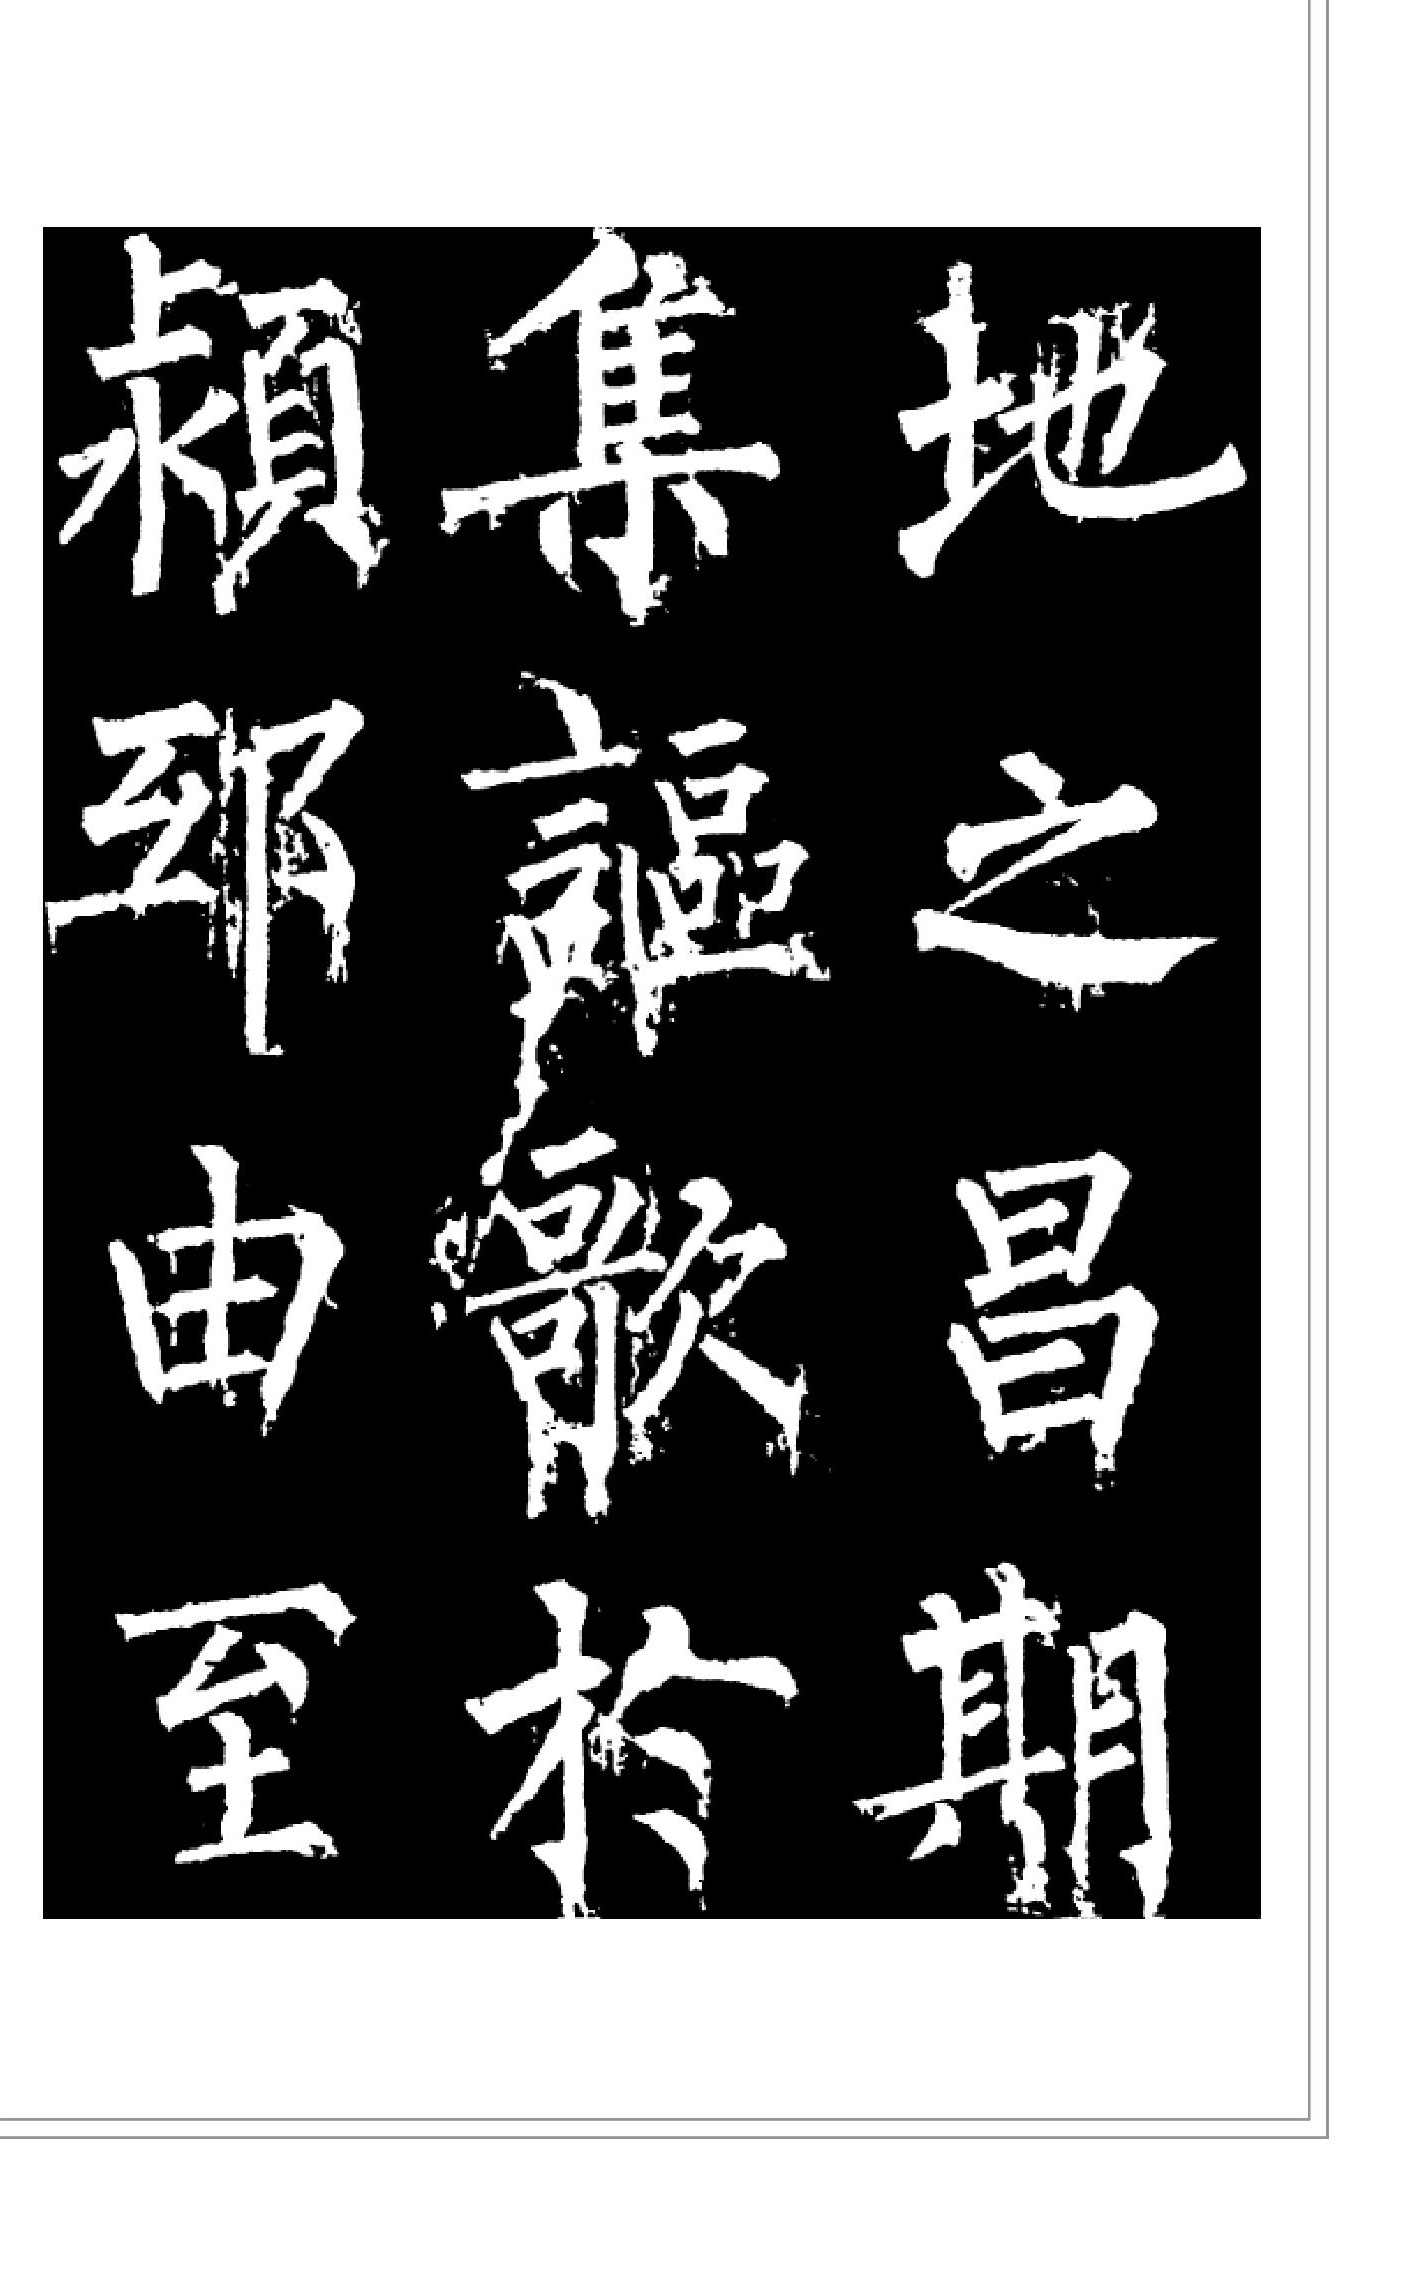 地之昌期
集謳歌於
潁邳由至